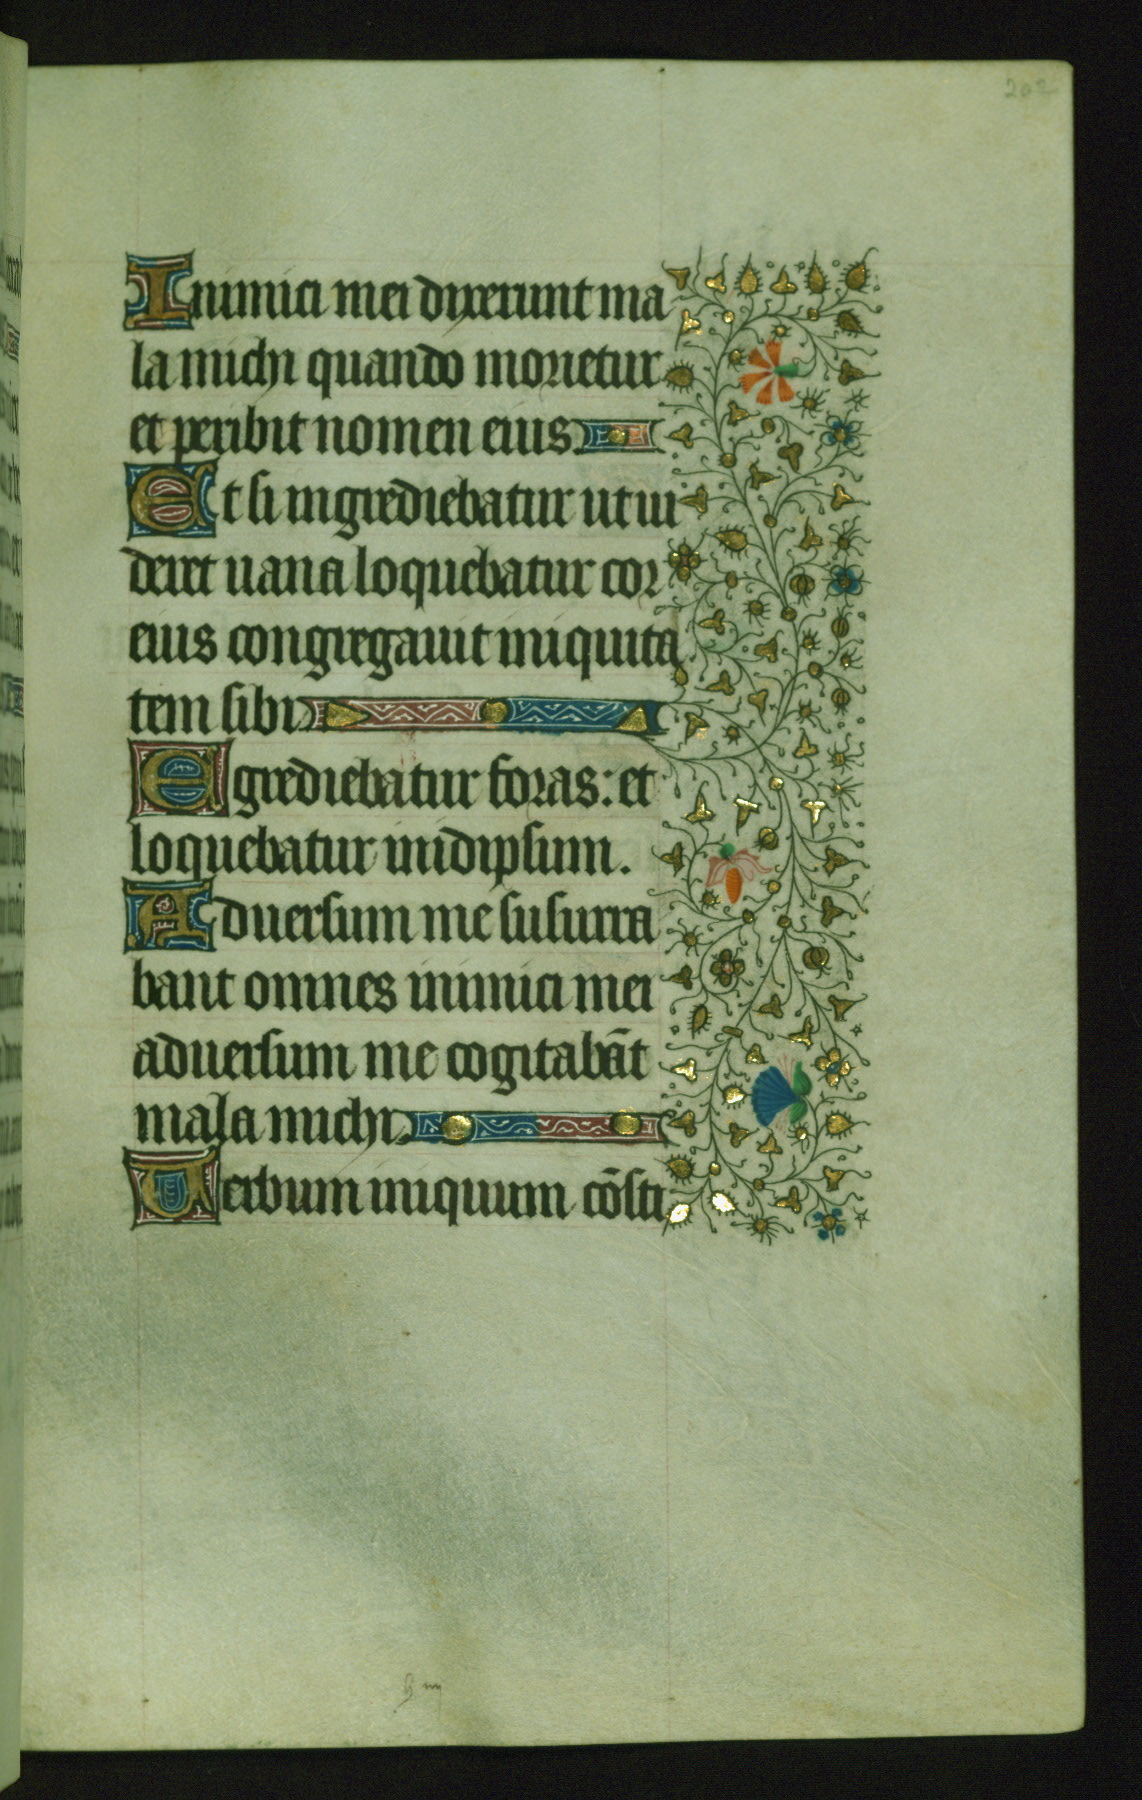 202
Inimici mei dixerunt ma
la michi quando morietur
et peribit nomen eius
Et si ingrediebatur ut vi
deret uana loquebatur cor
eius congregauit iniquita
tem sibi
Egrediebatur foras: et
loquebatur in idipsum.
Aduersum me susurra
bant omnes inimici mei
aduersum me cogitabāt
mala michi.
Uerbum iniquum cōsti